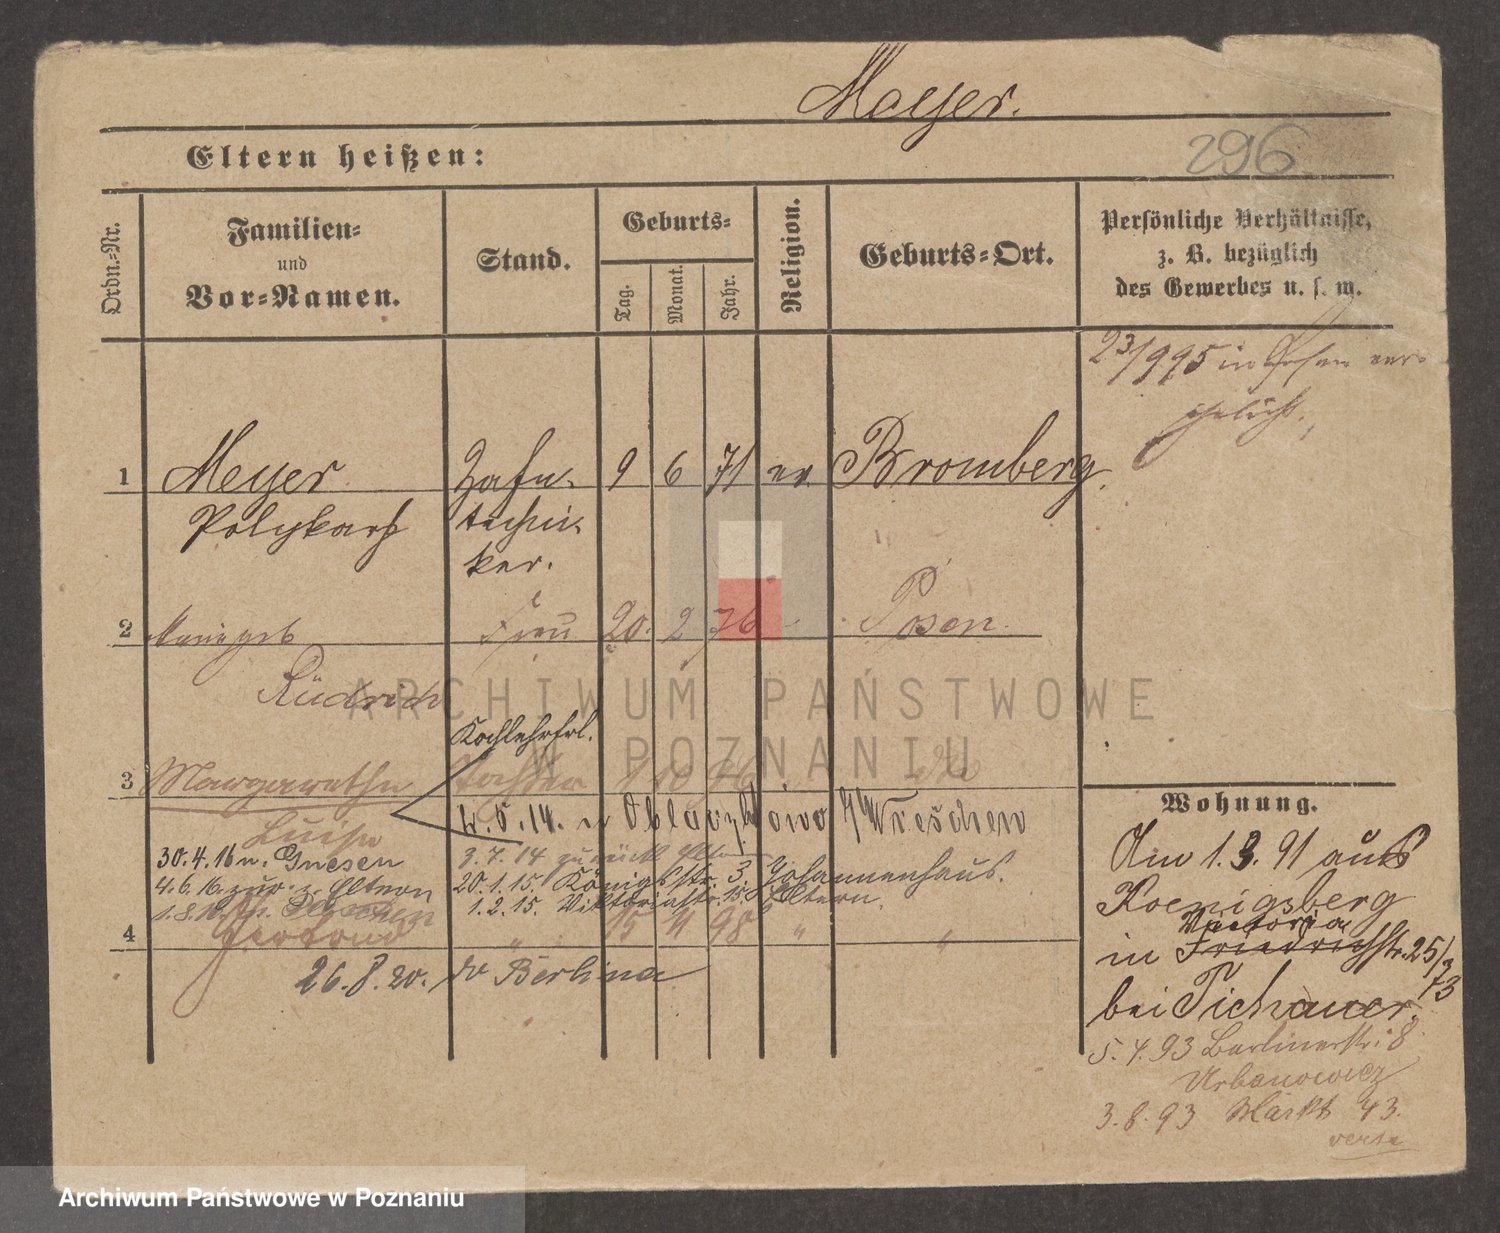 Meyer.
Eltern heißen:
296
Ordn.-Nr.
Familien-
und
Vor-Namen.
Stand.
Geburts-
Tag.
Monat.
Jahr.
Religion.
Geburts-Ort.
Persönliche Verhältnisse,
z. B. bezüglich
des Gewerbes u. s. w.
23/9 95 in Posen ver-
ehelicht.
1 Meyer Zahn- 9 6 71 ev. Bromberg.
Polykarp techni-
ker.
2 Marie geb Frau 20. 2 76 Posen
Rüdrich
Kochlehrfrl.
3 Margarethe Tochter 1 10 96
Luise
4. 5. 14. n Wreschen
30.4.16 n. Gnesen 9.7.14 zurück
4.6.16 zur. z. Eltern 20.1.15. Königsstr. 3. Johannenhaus.
1.2.15. Viktoriastr. Eltern.
4 Gertrud " 15 4 98 " "
26.8.20. Berlina
Wohnung.
Am 1.3.91 aus
Koenigsberg
Victoria
in Friedrichstr. 25/3
73
bei Tichauer.
5.4.93 Berlinerstr. 8
Urbanowicz
3.8.93 Markt 43.
verte
ARCHIWUM PAŃSTWOWE
W POZNANIU
Archiwum Państwowe w Poznaniu